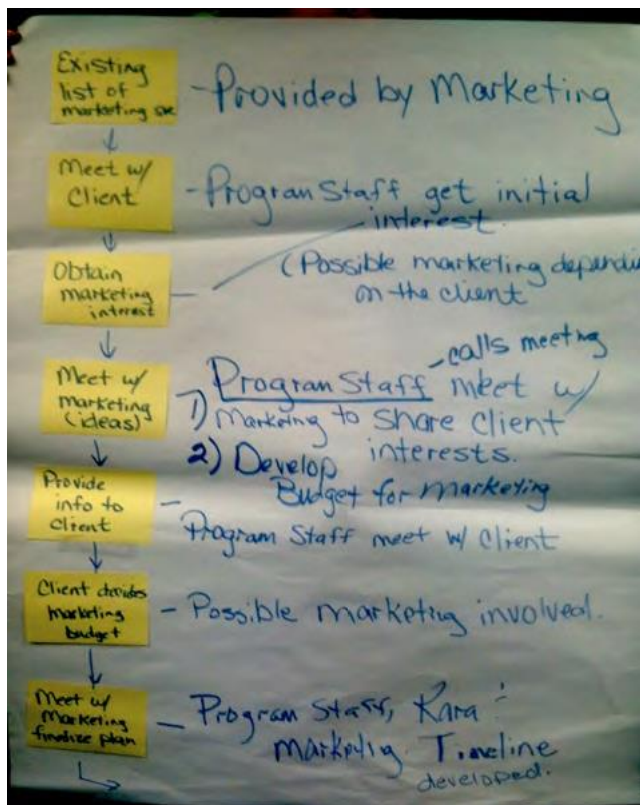 Existing
list of
marketing
- Provided by Marketing
Meet w/
Client
- Program Staff get initial
interest.
(Possible marketing dependi
on the client
Obtain
marketing
interest
Meet w/
marketing
(ideas)
- calls meeting
1) Program Staff meet w/
Marketing to share client
interests.
2) Develop
Budget for marketing
Provide
info to
Client
- Program Staff meet w/ Client
Client decides
marketing
budget
- Possible marketing involved.
Meet w/
Marketing
finalize plan
- Program Staff, Kara
marketing Timeline
developed.